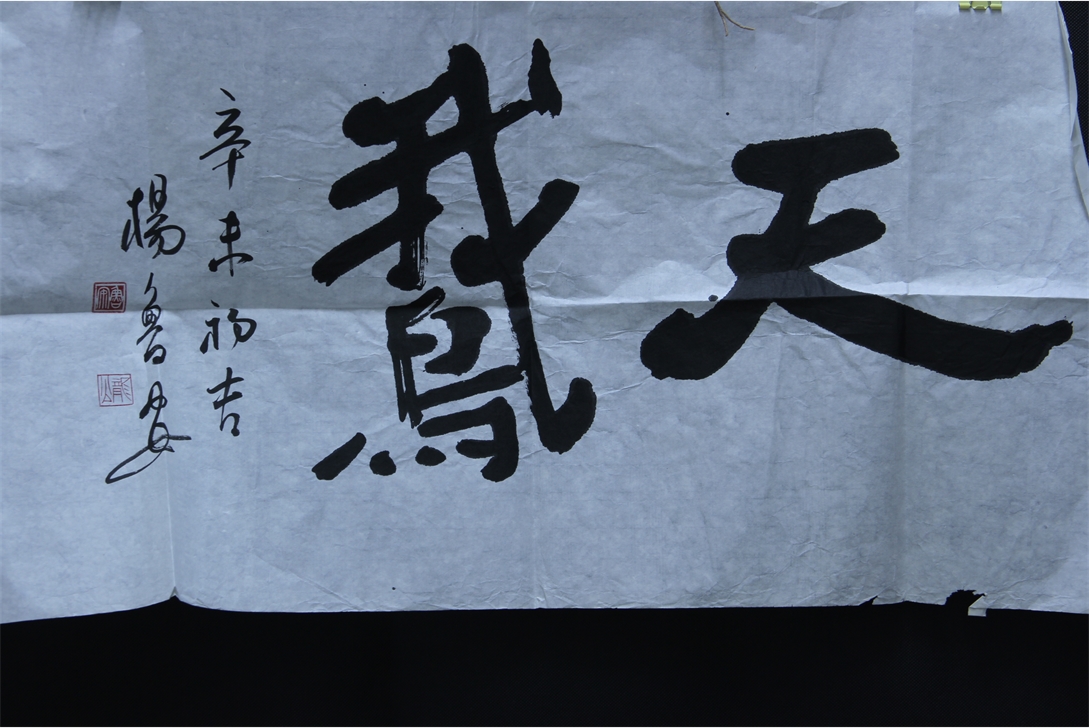 天鵞
辛未初吉
楊魯安
魯安